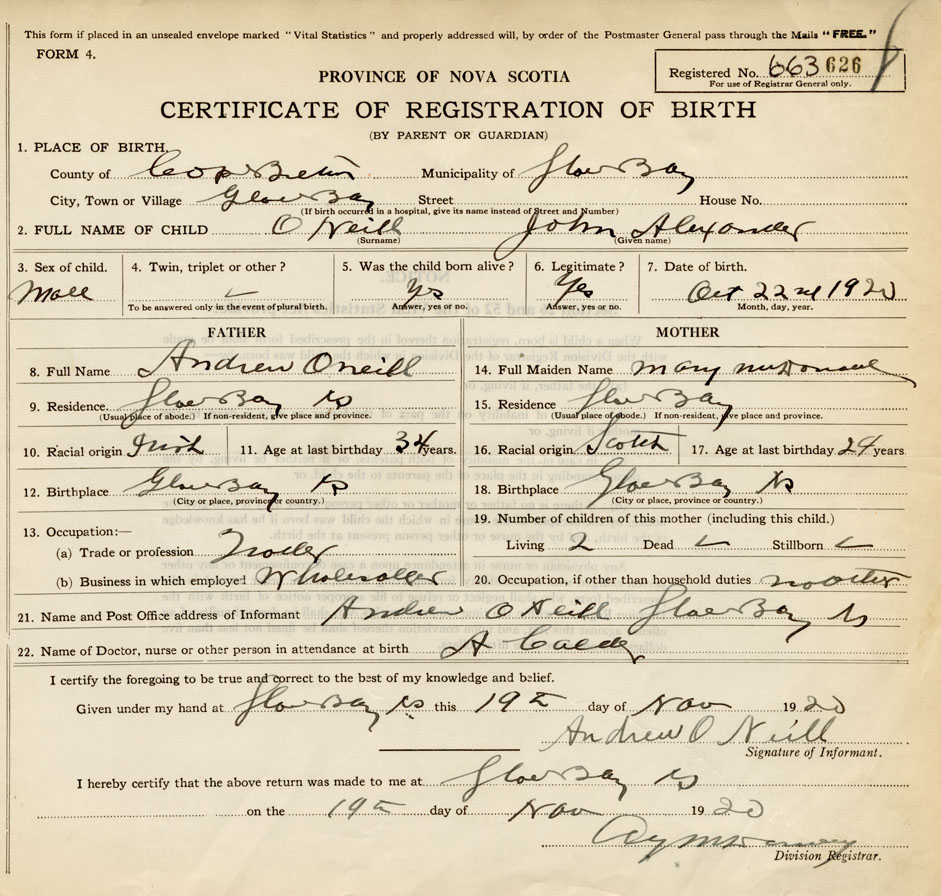 This form if placed in an unsealed envelope marked "Vital Statistics" and properly addressed will, by order of the Postmaster General pass through the Mails "FREE."
FORM 4.
PROVINCE OF NOVA SCOTIA
Registered No. 663626
For use of Registrar General only.
CERTIFICATE OF REGISTRATION OF BIRTH
(BY PARENT OR GUARDIAN)
1. PLACE OF BIRTH.
County of Cape Breton Municipality of Glace Bay
City, Town or Village Glace Bay Street House No.
(If birth occurred in a hospital, give its name instead of Street and Number)
2. FULL NAME OF CHILD O'Neill John Alexander
(Surname) (Given name)
3. Sex of child. 4. Twin, triplet or other? 5. Was the child born alive? 6. Legitimate? 7. Date of birth.
Male Yes Yes Oct 22nd 1920
To be answered only in the event of plural birth. Answer, yes or no. Answer, yes or no. Month, day, year.
FATHER MOTHER
8. Full Name Andrew Oneill 14. Full Maiden Name Mary McDonald
9. Residence. Glace Bay NS 15. Residence Glace Bay
(Usual place of abode.) If non-resident, give place and province. (Usual place of abode.) If non-resident, give place and province.
10. Racial origin Irish 11. Age at last birthday 34 years. 16. Racial origin Scotch 17. Age at last birthday 24 years
12. Birthplace Glace Bay NS 18. Birthplace Glace Bay NS
(City or place, province or country.) (City or place, province or country.)
13. Occupation:— 19. Number of children of this mother (including this child.)
(a) Trade or profession Living 2 Dead Stillborn
(b) Business in which employed Wholesaller 20. Occupation, if other than household duties no other
21. Name and Post Office address of Informant Andrew O Neill Glace Bay NS
22. Name of Doctor, nurse or other person in attendance at birth A Calder
I certify the foregoing to be true and correct to the best of my knowledge and belief.
Given under my hand at Glace Bay NS this 19th day of Nov 1920
Andrew O Neill
Signature of Informant.
I hereby certify that the above return was made to me at Glace Bay NS
on the 19th day of Nov 1920
Division Registrar.